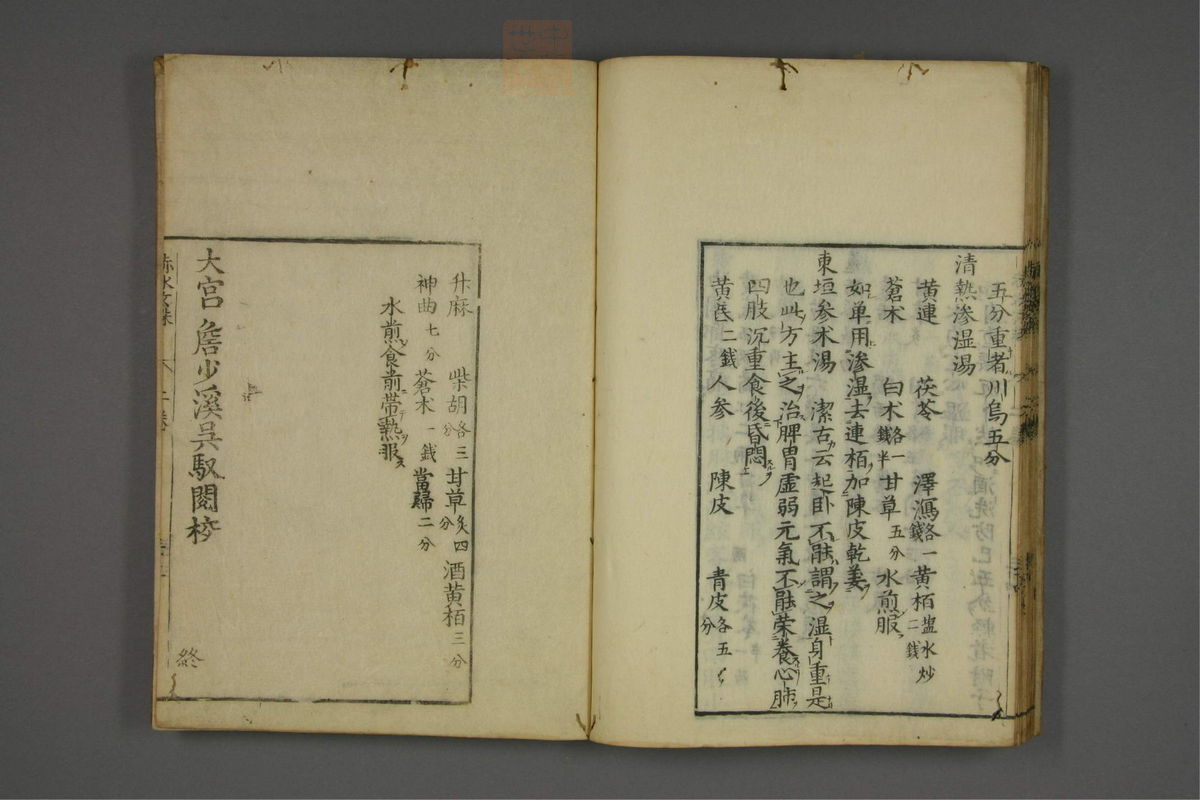 五分重者川烏五分
清熱渗湿湯
黄連 茯苓 澤瀉各一錢 黄栢塩水炒二錢
蒼木 白木各一錢半 甘草五分 水煎服
如单用渗湿去連栢加陳皮乾姜
東垣参术湯 潔古云起卧不能謂之湿身重是
也此方主之治脾胃虚弱元氣不能荣養心肺
四肢沉重食後昏悶
黄芪二錢 人参 陳皮 青皮各五分
升麻 柴胡各三分 甘草炙四分 酒黄栢三分
神曲七分 蒼木一錢 當歸二分
水煎食前帯熱服
大宫詹少溪呉馭閲校
終